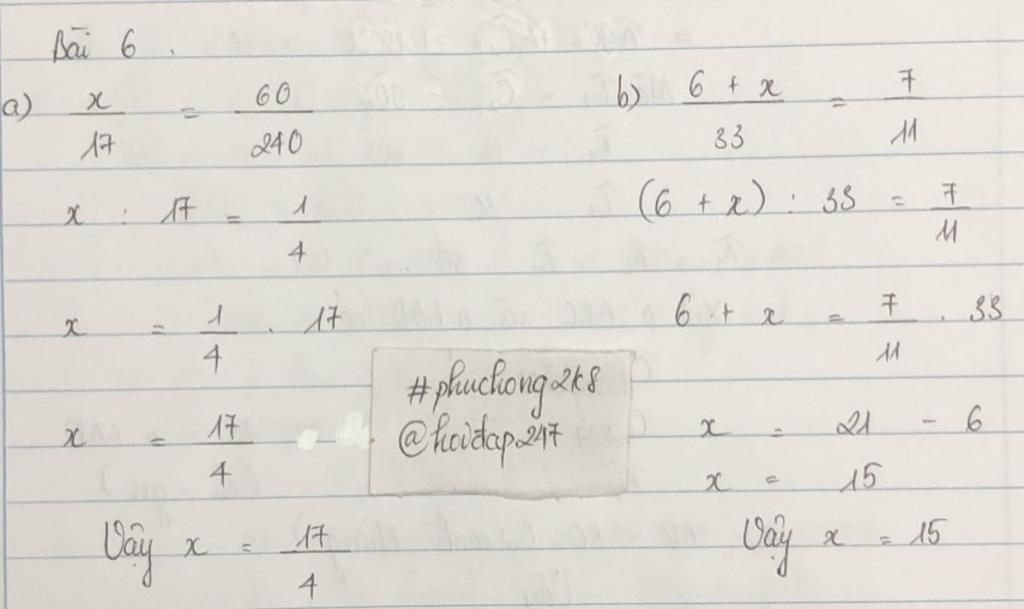 Bài 6.
a) x/17 = 60/240
x : 17 = 1/4
x = 1/4 . 17
x = 17/4
Vậy x = 17/4
b) (6 + x)/33 = 7/11
(6 + x) : 33 = 7/11
6 + x = 7/11 . 33
x = 21 - 6
x = 15
Vậy x = 15
#phuchong2k8
@hoidap247